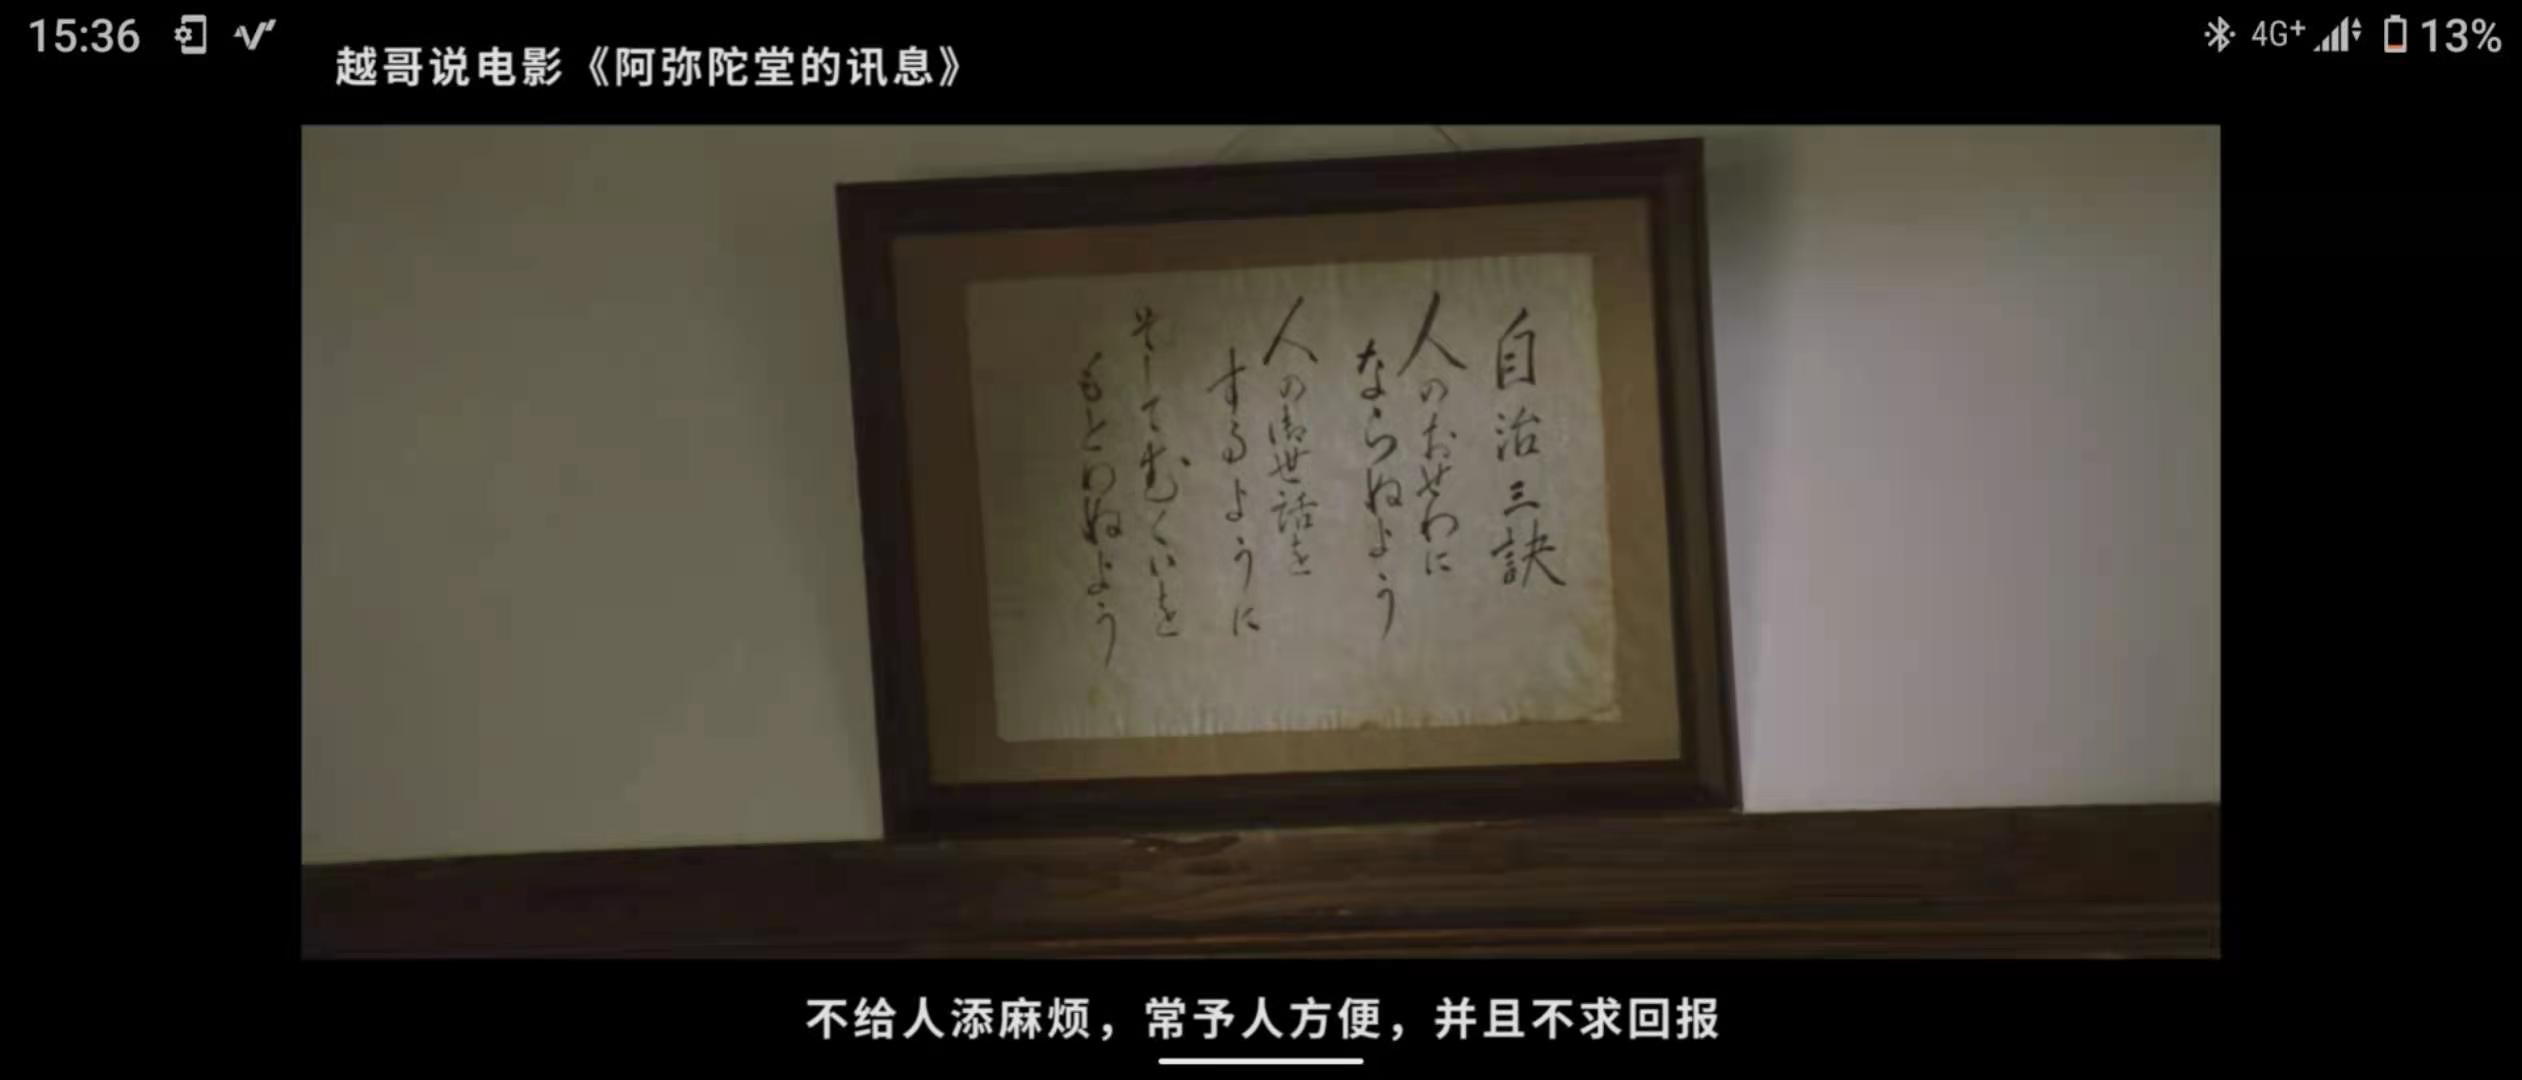 15:36
4G+
13%
越哥说电影《阿弥陀堂的讯息》
自治三訣
人のおせわに
ならぬよう
人の御世話を
するように
そしてむくいを
もとめぬよう
不给人添麻烦，常予人方便，并且不求回报